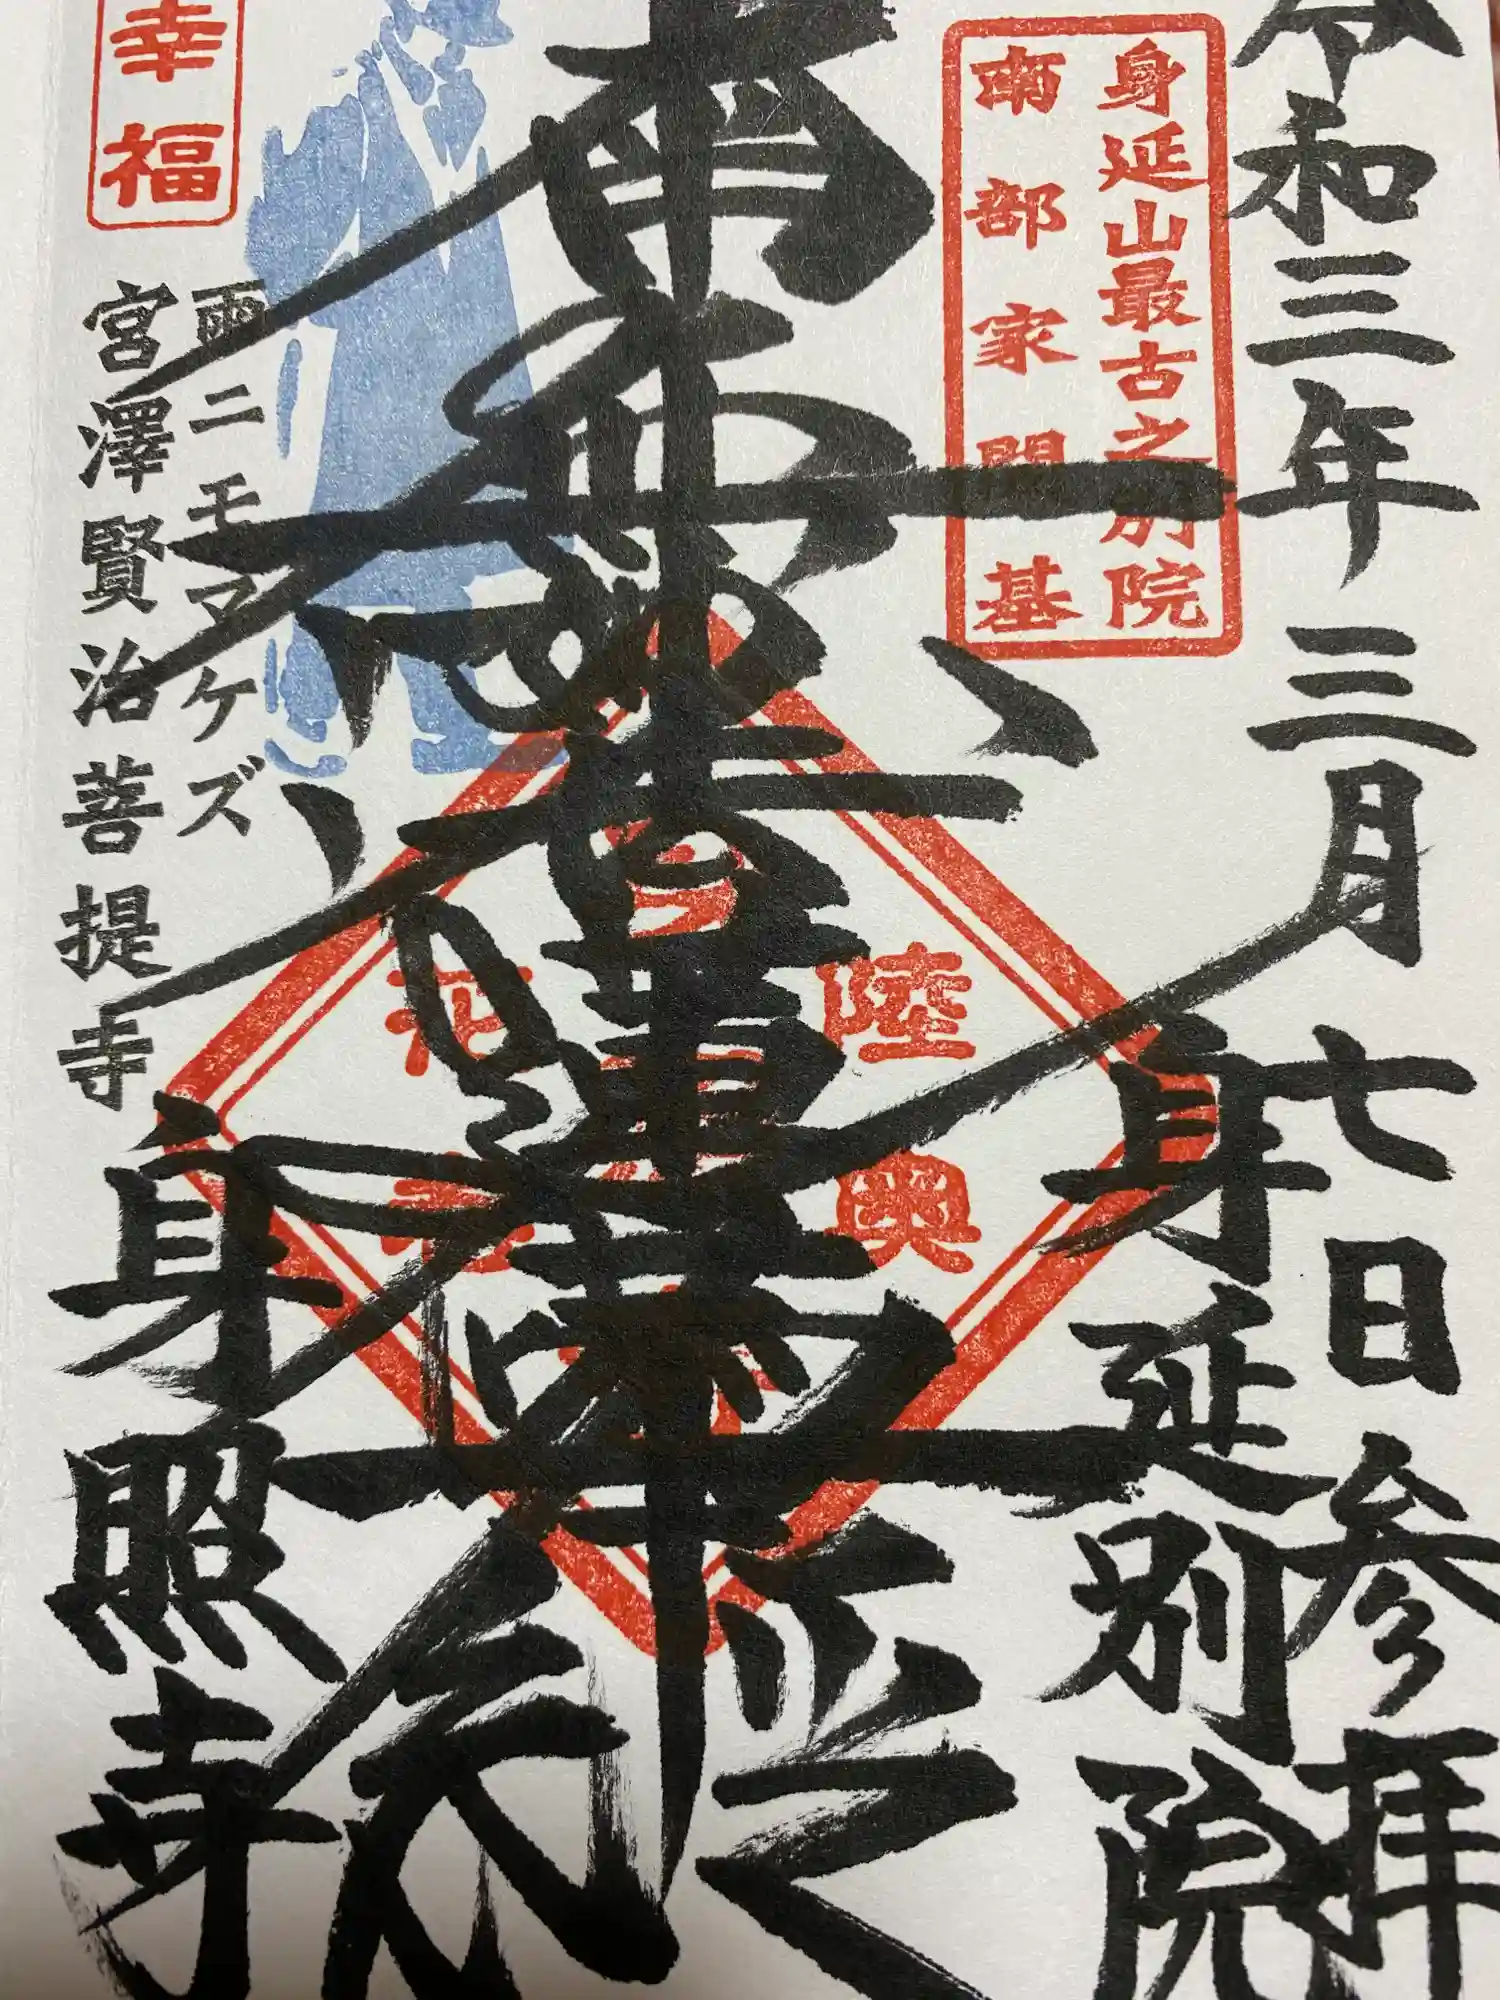 令和三年三月七日参拝
身延山最古之別院
南部家開基
身延別院
南無妙法蓮華経
陸奥
花巻
雨ニモマケズ
幸福
宮澤賢治菩提寺
身照寺